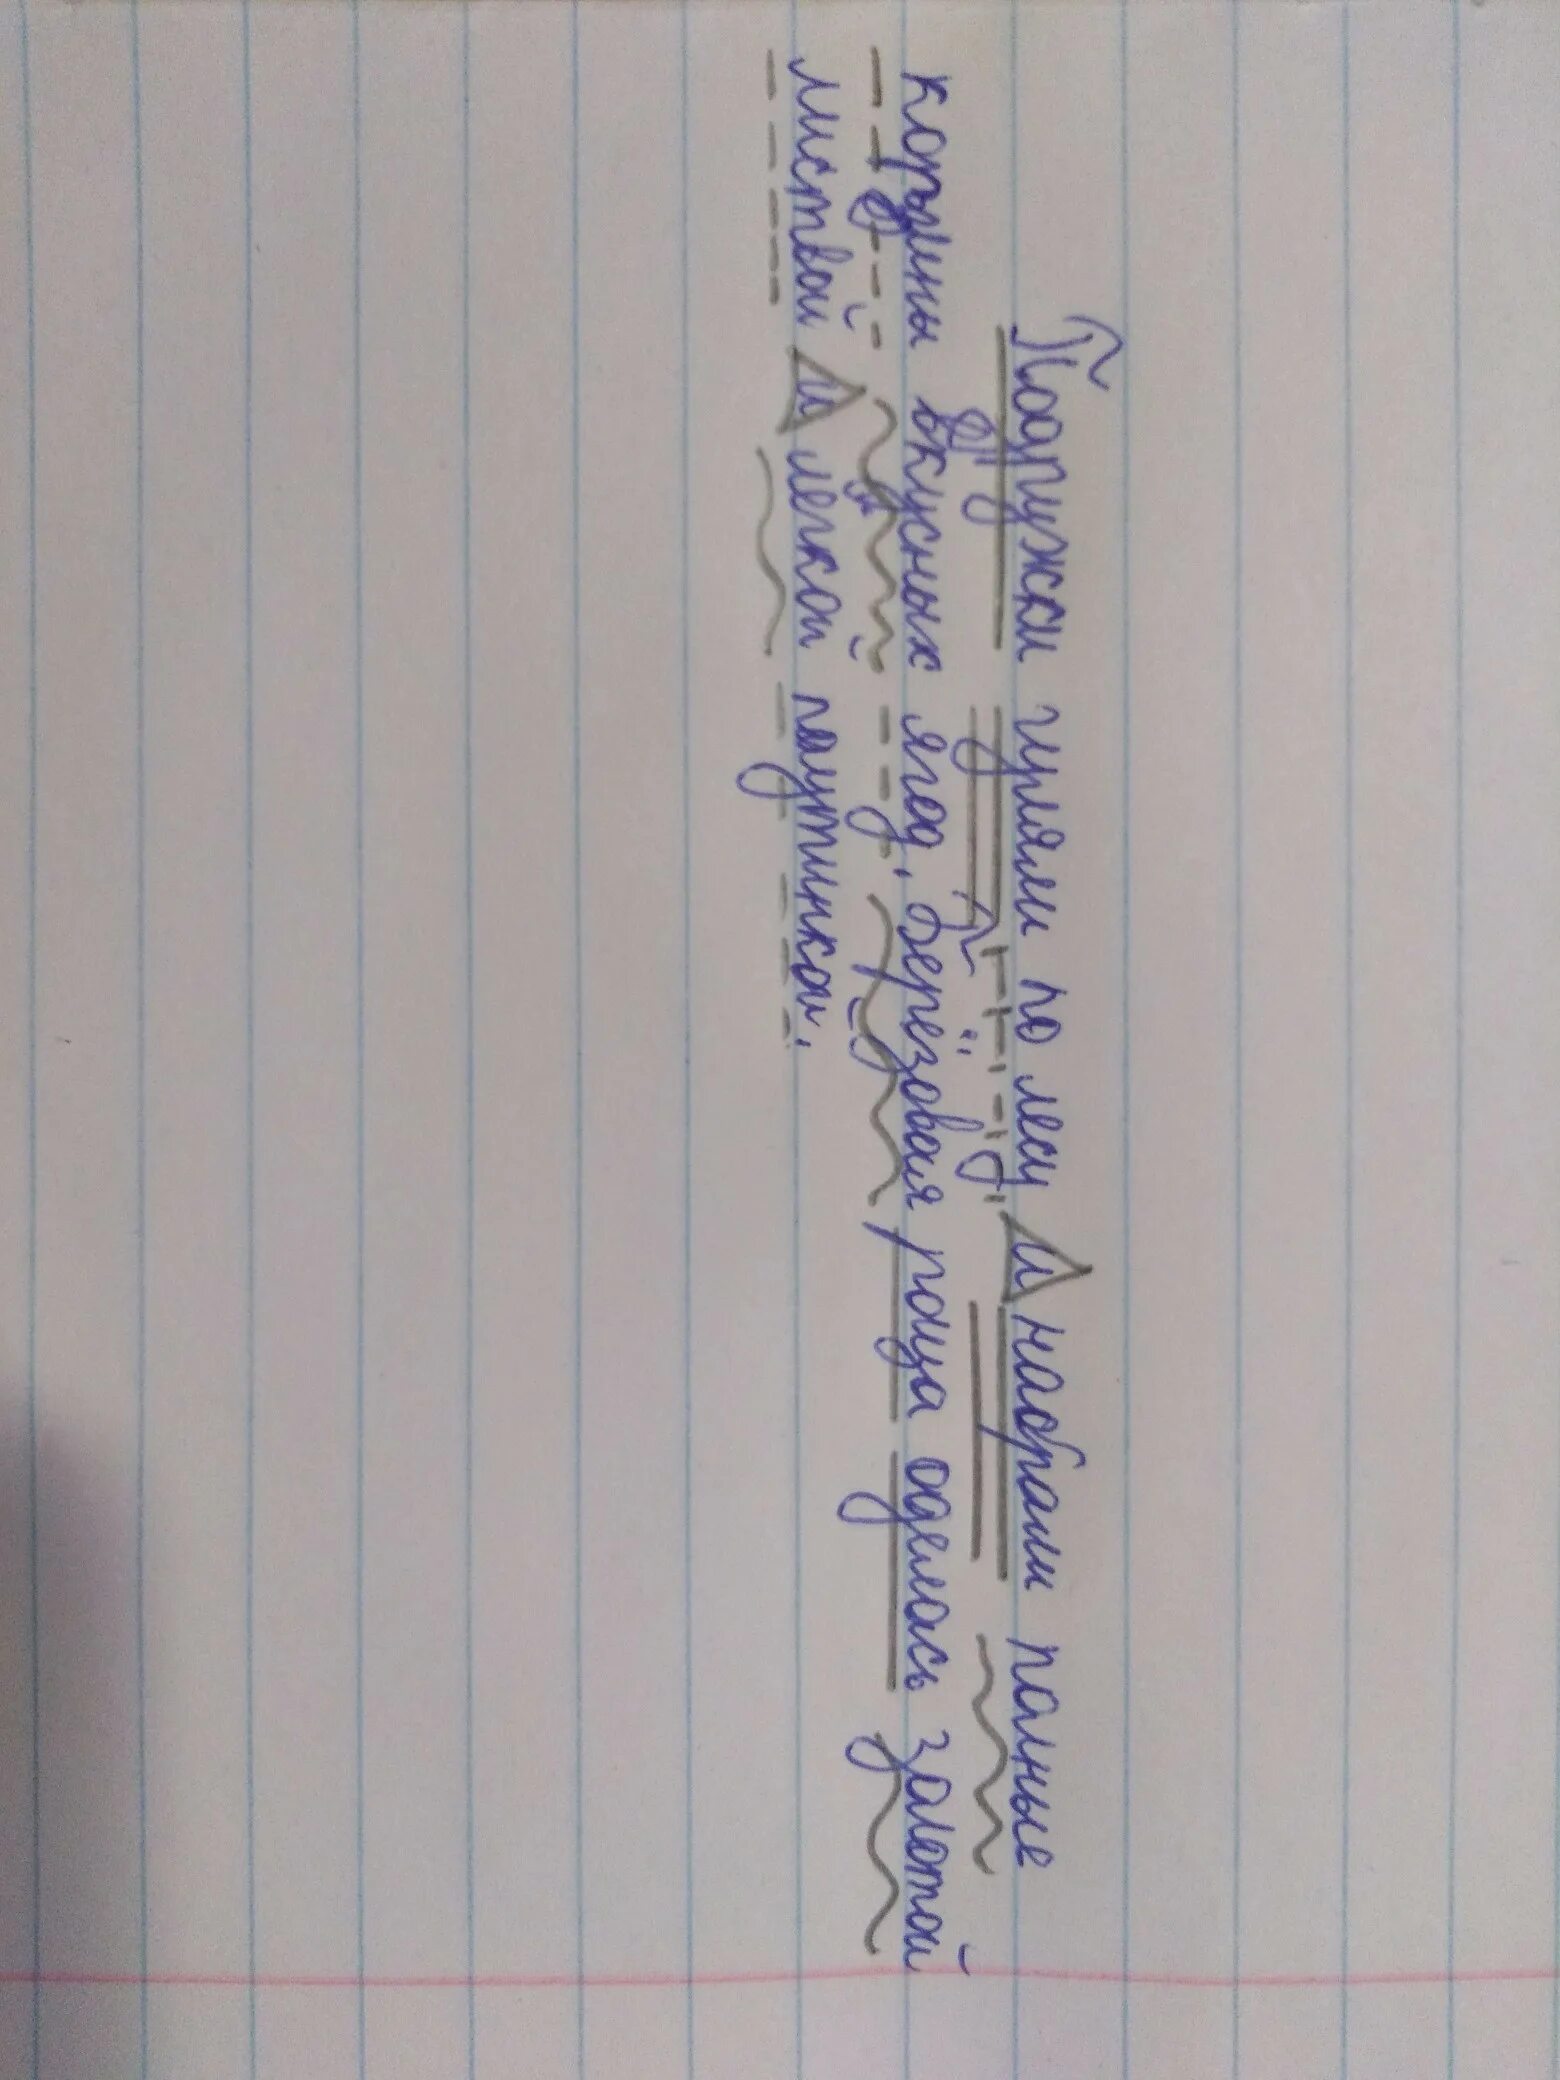 Подружки гуляли по лесу и набрали полные
корзины вкусных ягод. Берёзовая роща оделась золотой
листвой и легкой паутинкой.